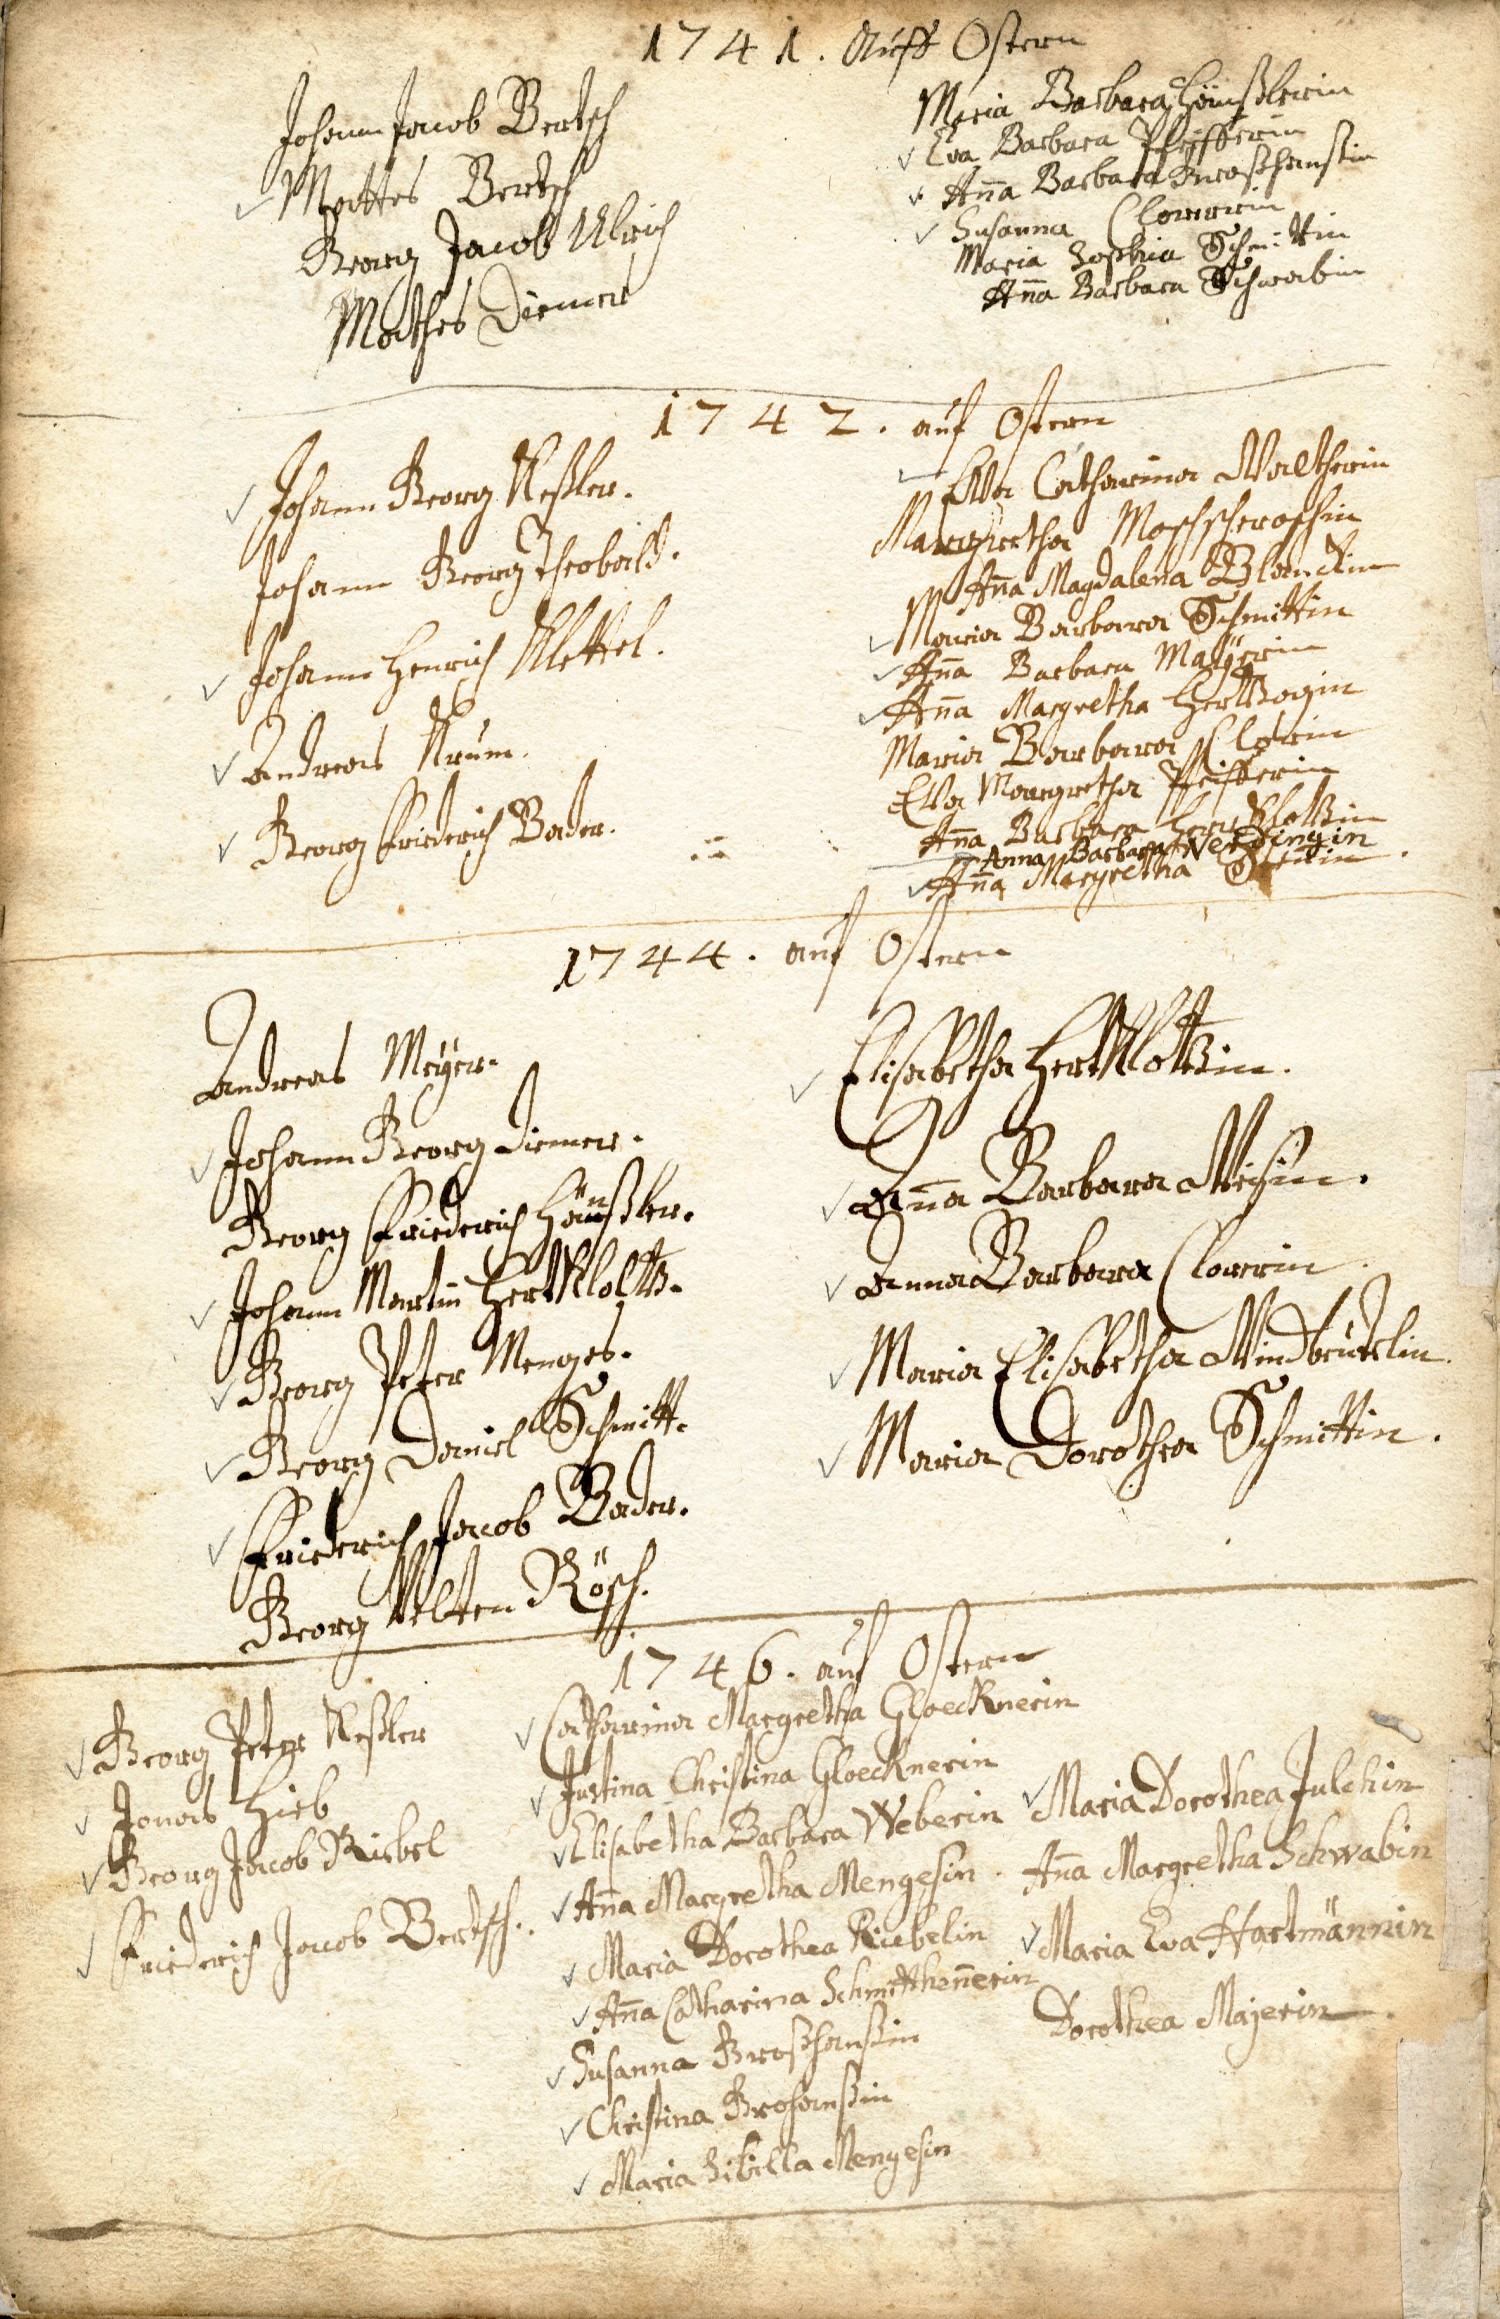 1741. Auff Ostern
Johann Jacob Bertsch
Mattes Bertsch
Georg Jacob Ulrich
Mathes Diemer
Maria Barbara Häußlerin
Eva Barbara Pfeifferin
Aña Barbara Großhanßin
Susanna Clorerin
Maria Sophia Schmittin
Aña Barbara Schwabin
1742. auf Ostern
Johann Georg Keßler.
Johann Georg Theobald.
Johann Henrich Klettel.
Andreas Krum.
Georg Friederich Bader.
Eva Catharina Waltherin
Margretha Moschscheroschin
Aña Magdalena Blanckin
Maria Barbara Schmittin
Aña Barbara Mayerin
Aña Margretha Hertzogin
Maria Barbara Clorin
Eva Margretha Pfeifferin
Aña Barbara Hertklotzin
Anna Barbara
Aña Margretha
1744. auf Ostern
Andreas Meyer.
Johann Georg Diemer.
Georg Friederich Häußler.
Johann Martin Hertklotz.
Georg Peter Menges.
Georg Daniel Schmitt.
Friederich Jacob Bader.
Georg Velten Rösch.
Elisabetha Hertklotzin.
Aña Barbara Weisin.
Anna Barbara Clorerin.
Maria Elisabetha Windbeutelin.
Maria Dorothea Schmittin.
1746. auf Ostern
Georg Peter Keßler
Jonas Hieb
Georg Jacob Riebel
Friederich Jacob Bertsch.
Catharina Margretha Gloecknerin
Justina Christina Gloecknerin
Elisabetha Barbara Weberin
Aña Margretha Mengesin.
Maria Dorothea Riebelin
Aña Catharina Schmitthen̄erin
Susanna Großhanßin
Christina Grohanßin
Maria Sibilla Mengesin
Maria Dorothea Julchin
Aña Margretha Schwabin
Maria Eva Hartmännin
Dorothea Majerin.